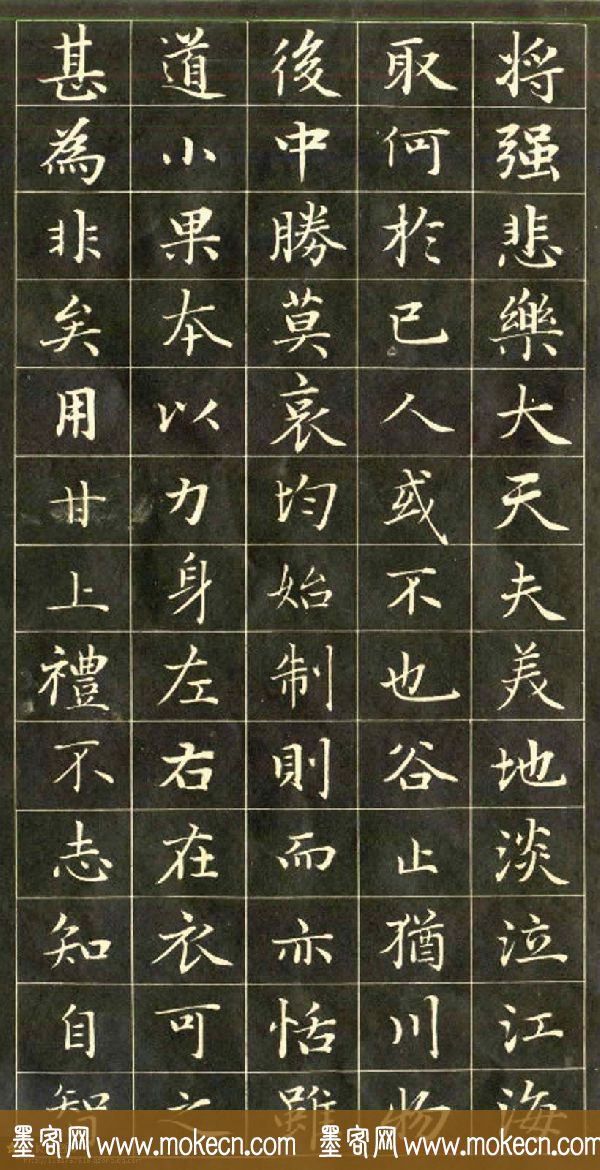 将强悲樂大天夫美地淡泣江海
取何於已人或不也谷止猶川物
後中勝莫哀均始制則而亦恬雖
道小果本以力身左右在衣可之
甚為非矣用甘上禮不志知自智
墨客网 www.mokecn.com 墨客网 www.mokecn.com